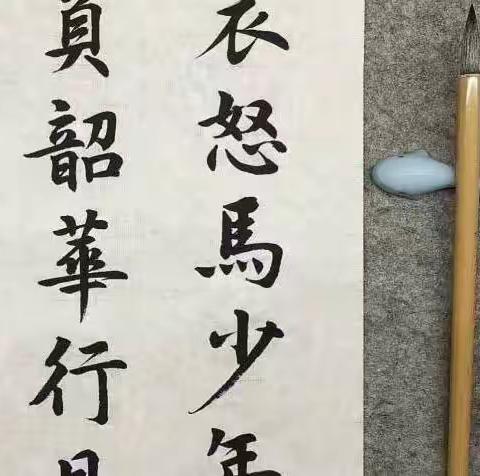 衣怒馬少年
負韶華行且